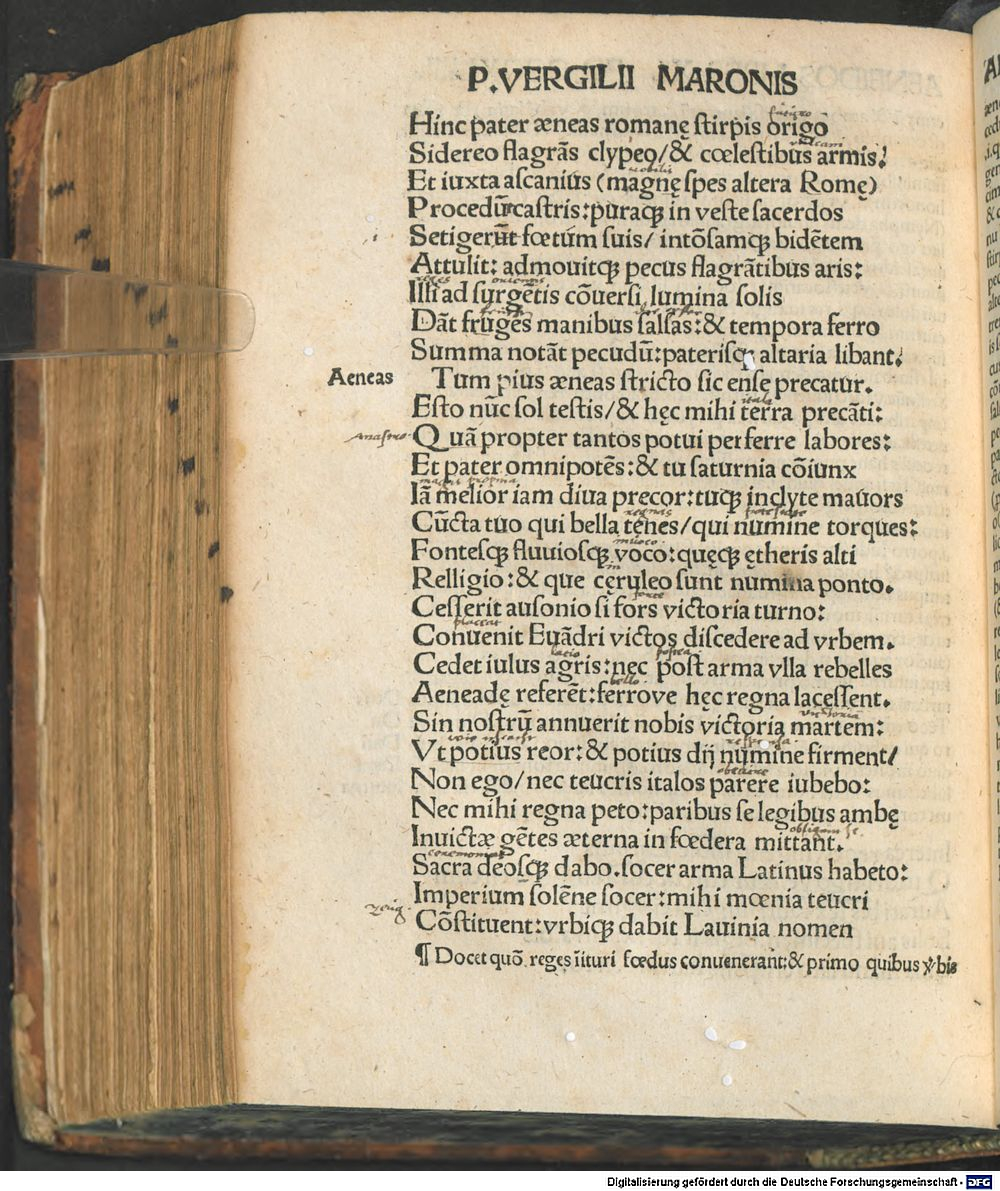 P.VERGILII MARONIS
Hinc pater æneas romanę stirpis origo
Sidereo flagrãs clypeo/& cœlestibus armis.
Et iuxta ascanius (magnę spes altera Romę)
Procedũt castris:puraqꝫ in veste sacerdos
Setigerũt fœtum suis/ intõsamqꝫ bidẽtem
Attulit: admouitqꝫ pecus flagrãtibus aris:
Illi ad surgẽtis cõuersi lumina solis
Dãt fruges manibus salsas:& tempora ferro
Summa notãt pecudũ:paterisqꝫ altaria libant.
Aeneas Tum pius æneas stricto sic ense precatur.
Esto nũc sol testis/& hęc mihi terra precãti:
Quã propter tantos potui perferre labores:
Et pater omnipotẽs:& tu saturnia cõiunx
Iã melior iam diua precor:tuqꝫ inclyte mauors
Cũcta tuo qui bella tenes/qui numine torques:
Fontesqꝫ fluuiosqꝫ voco:quęqꝫ ętheris alti
Relligio:& que cęruleo sunt numina ponto.
Cesserit ausonio si fors victoria turno:
Conuenit Euãdri victos discedere ad vrbem.
Cedet iulus agris:nec post arma vlla rebelles
Aeneadę referẽt:ferroue hęc regna lacessent.
Sin nostrũ annuerit nobis victoria martem:
Vt potius reor:& potius dij numine firment/
Non ego/nec teucris italos parere iubebo:
Nec mihi regna peto:paribus se legibus ambę
Inuictæ gẽtes æterna in fœdera mittant.
Sacra deosqꝫ dabo.socer arma Latinus habeto:
Imperium solẽne socer:mihi mœnia teucri
Cõstituent:vrbiqꝫ dabit Lauinia nomen
¶ Docet quõ reges ĩituri fœdus conuenerant:& primo quibus bis
Digitalisierung gefördert durch die Deutsche Forschungsgemeinschaft - DFG